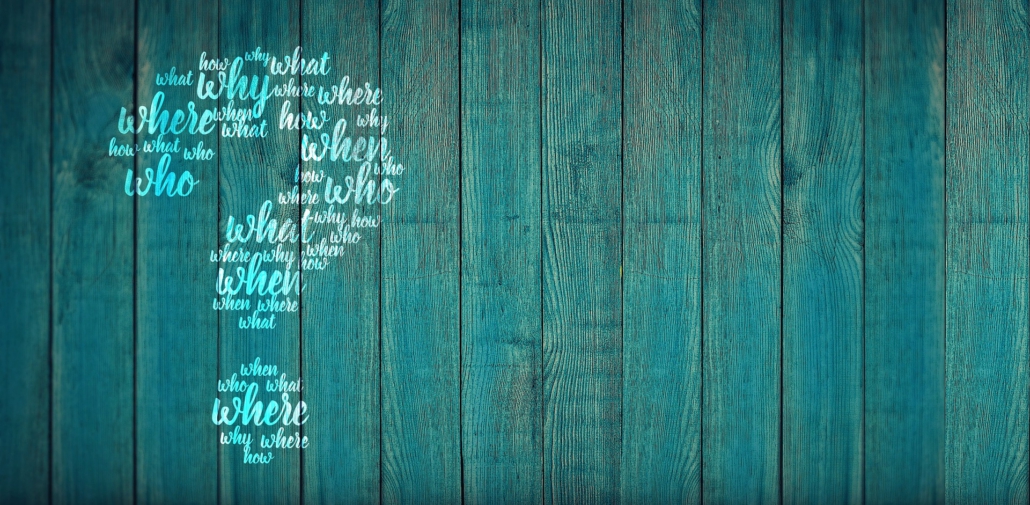 how why what
what why where where
where when what how why
how what who when who
who how where who
what why how
who
where why when how
when
when where
what
when
who what
where
why where
how